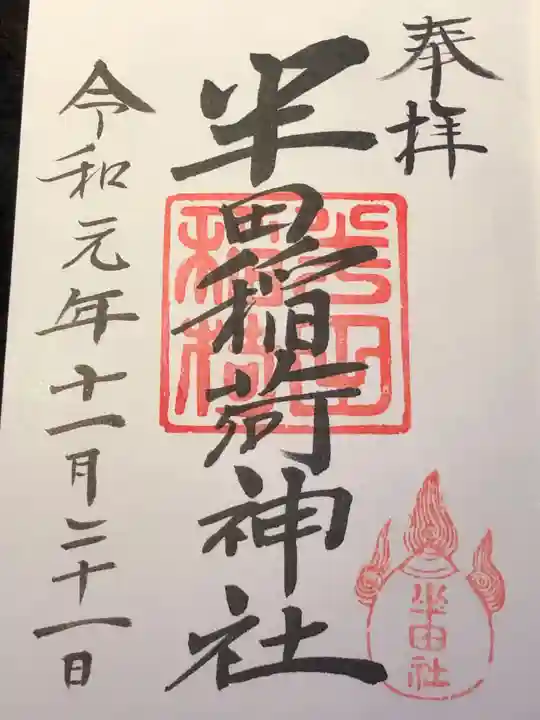 奉拝
半田稲荷神社
半田稲荷
半田社
令和元年十一月二十一日